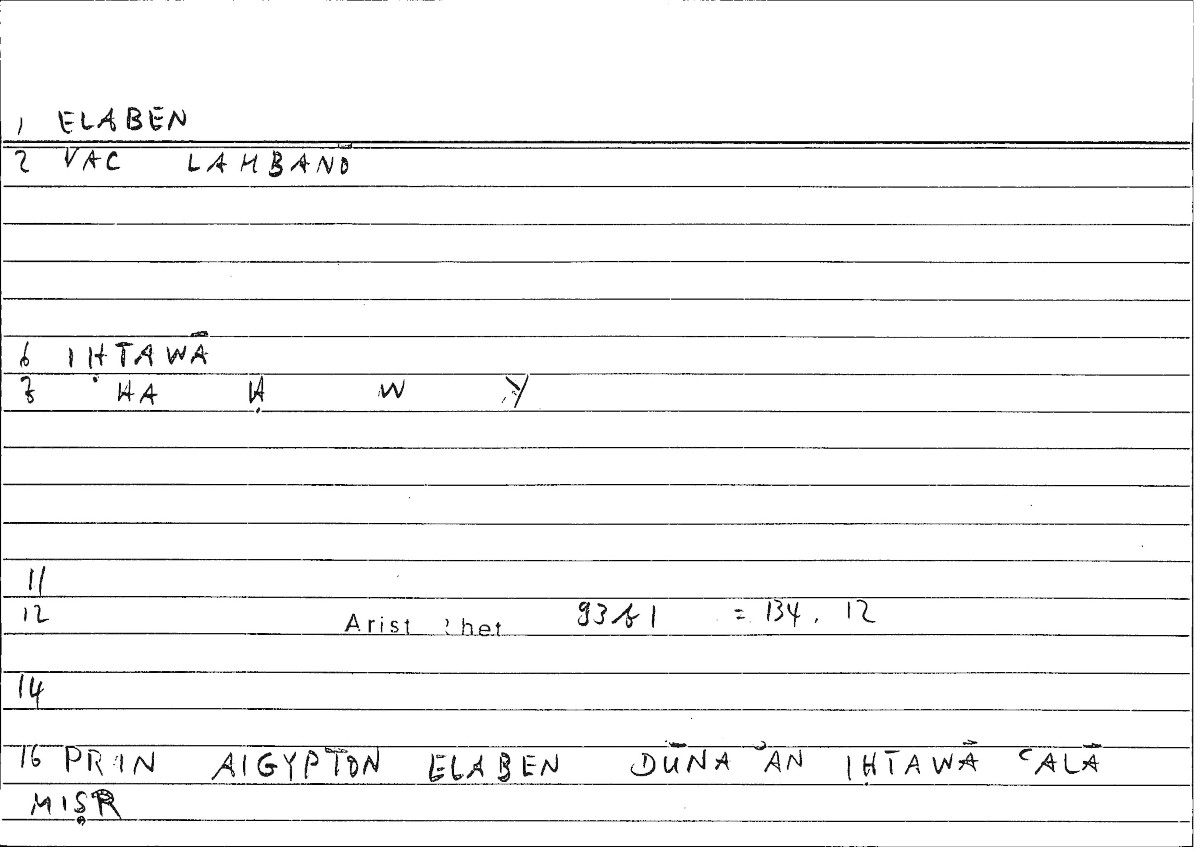 1 ELABEN
2 VAC LAMBANŌ
6 IḤTAWĀ
7 ḤA Ḥ W Y
11
12 Arist Rhet 93b1 = 134, 12
14
16 PRIN AIGYPTON ELABEN DŪNA ʾAN IḤTAWĀ ʿALĀ
MIṢR